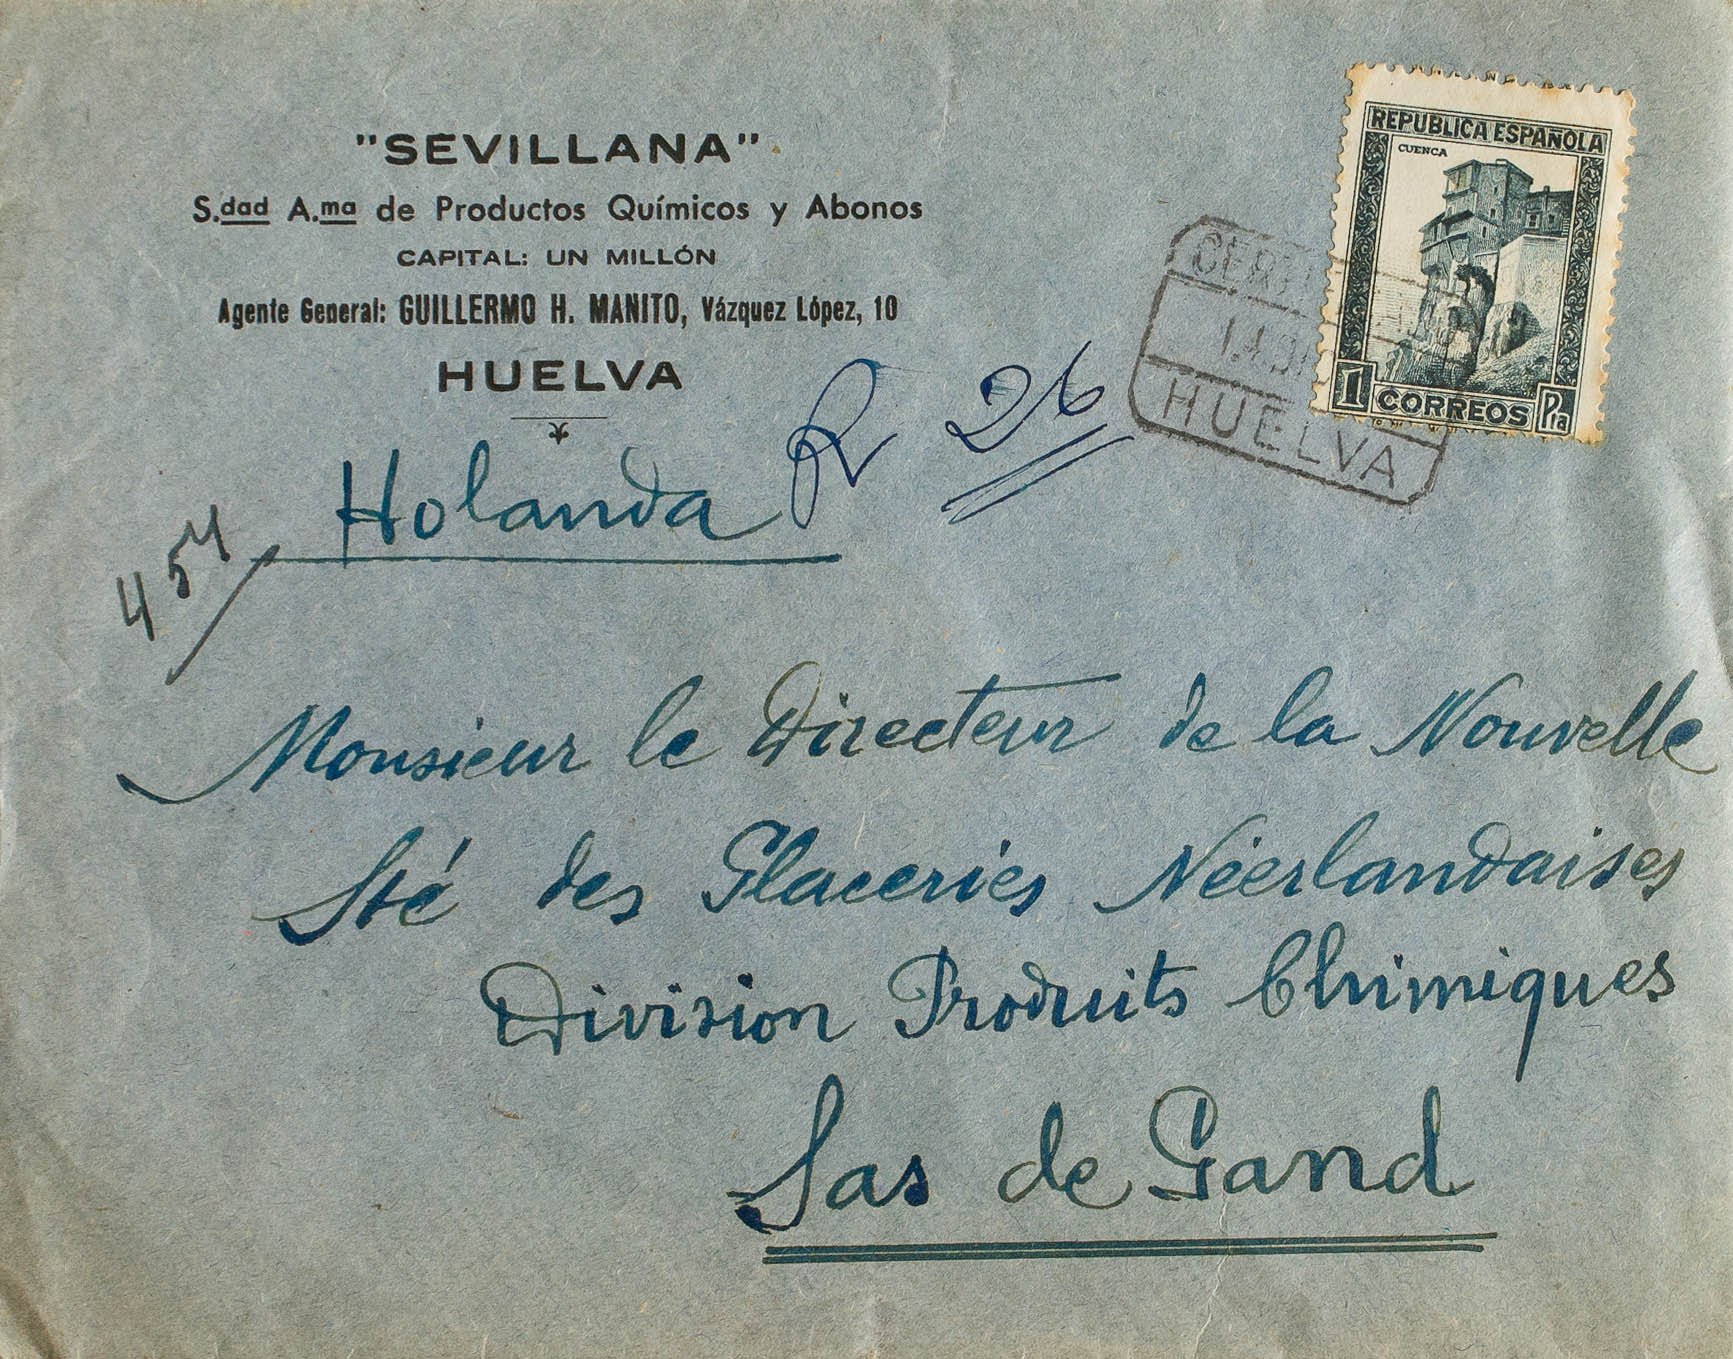 "SEVILLANA"
S.dad A.ma de Productos Químicos y Abonos
CAPITAL: UN MILLÓN
Agente General: GUILLERMO H. MANITO, Vázquez López, 10
HUELVA
REPUBLICA ESPAÑOLA
CUENCA
1 CORREOS Pta
HUELVA
R 26
Holanda
457
Monsieur le Directeur de la Nouvelle
Sté des Glaceries Néerlandaises
Division Produits Chimiques
Sas de Gand